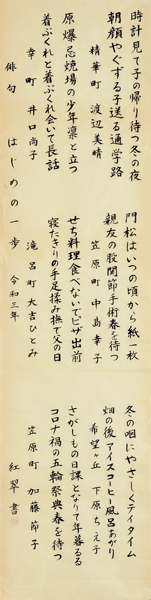 時計見て子の帰り待つ冬の夜
朝顔やぐずる子送る通学路
精華町 渡辺美晴
原爆忌焼場の少年凛と立つ
着ぶくれと着ぶくれ会いて長話
幸町 井口尚子
門松はいつの頃から紙一枚
親友の股関節手術春を待つ
笠原町 中島幸子
せち料理食べないでピザ出前
寝たきりの手足揉み撫で父の日
滝呂町 大吉ひとみ
冬の咽にやさしくティタイム
畑の後アイスコーヒー風呂あがり
希望ヶ丘 下原ちえ子
さがしもの日課となりて年暮るる
コロナ禍の五輪祭典春を待つ
笠原町 加藤節子
俳句 はじめの一歩 令和三年
紅翠書